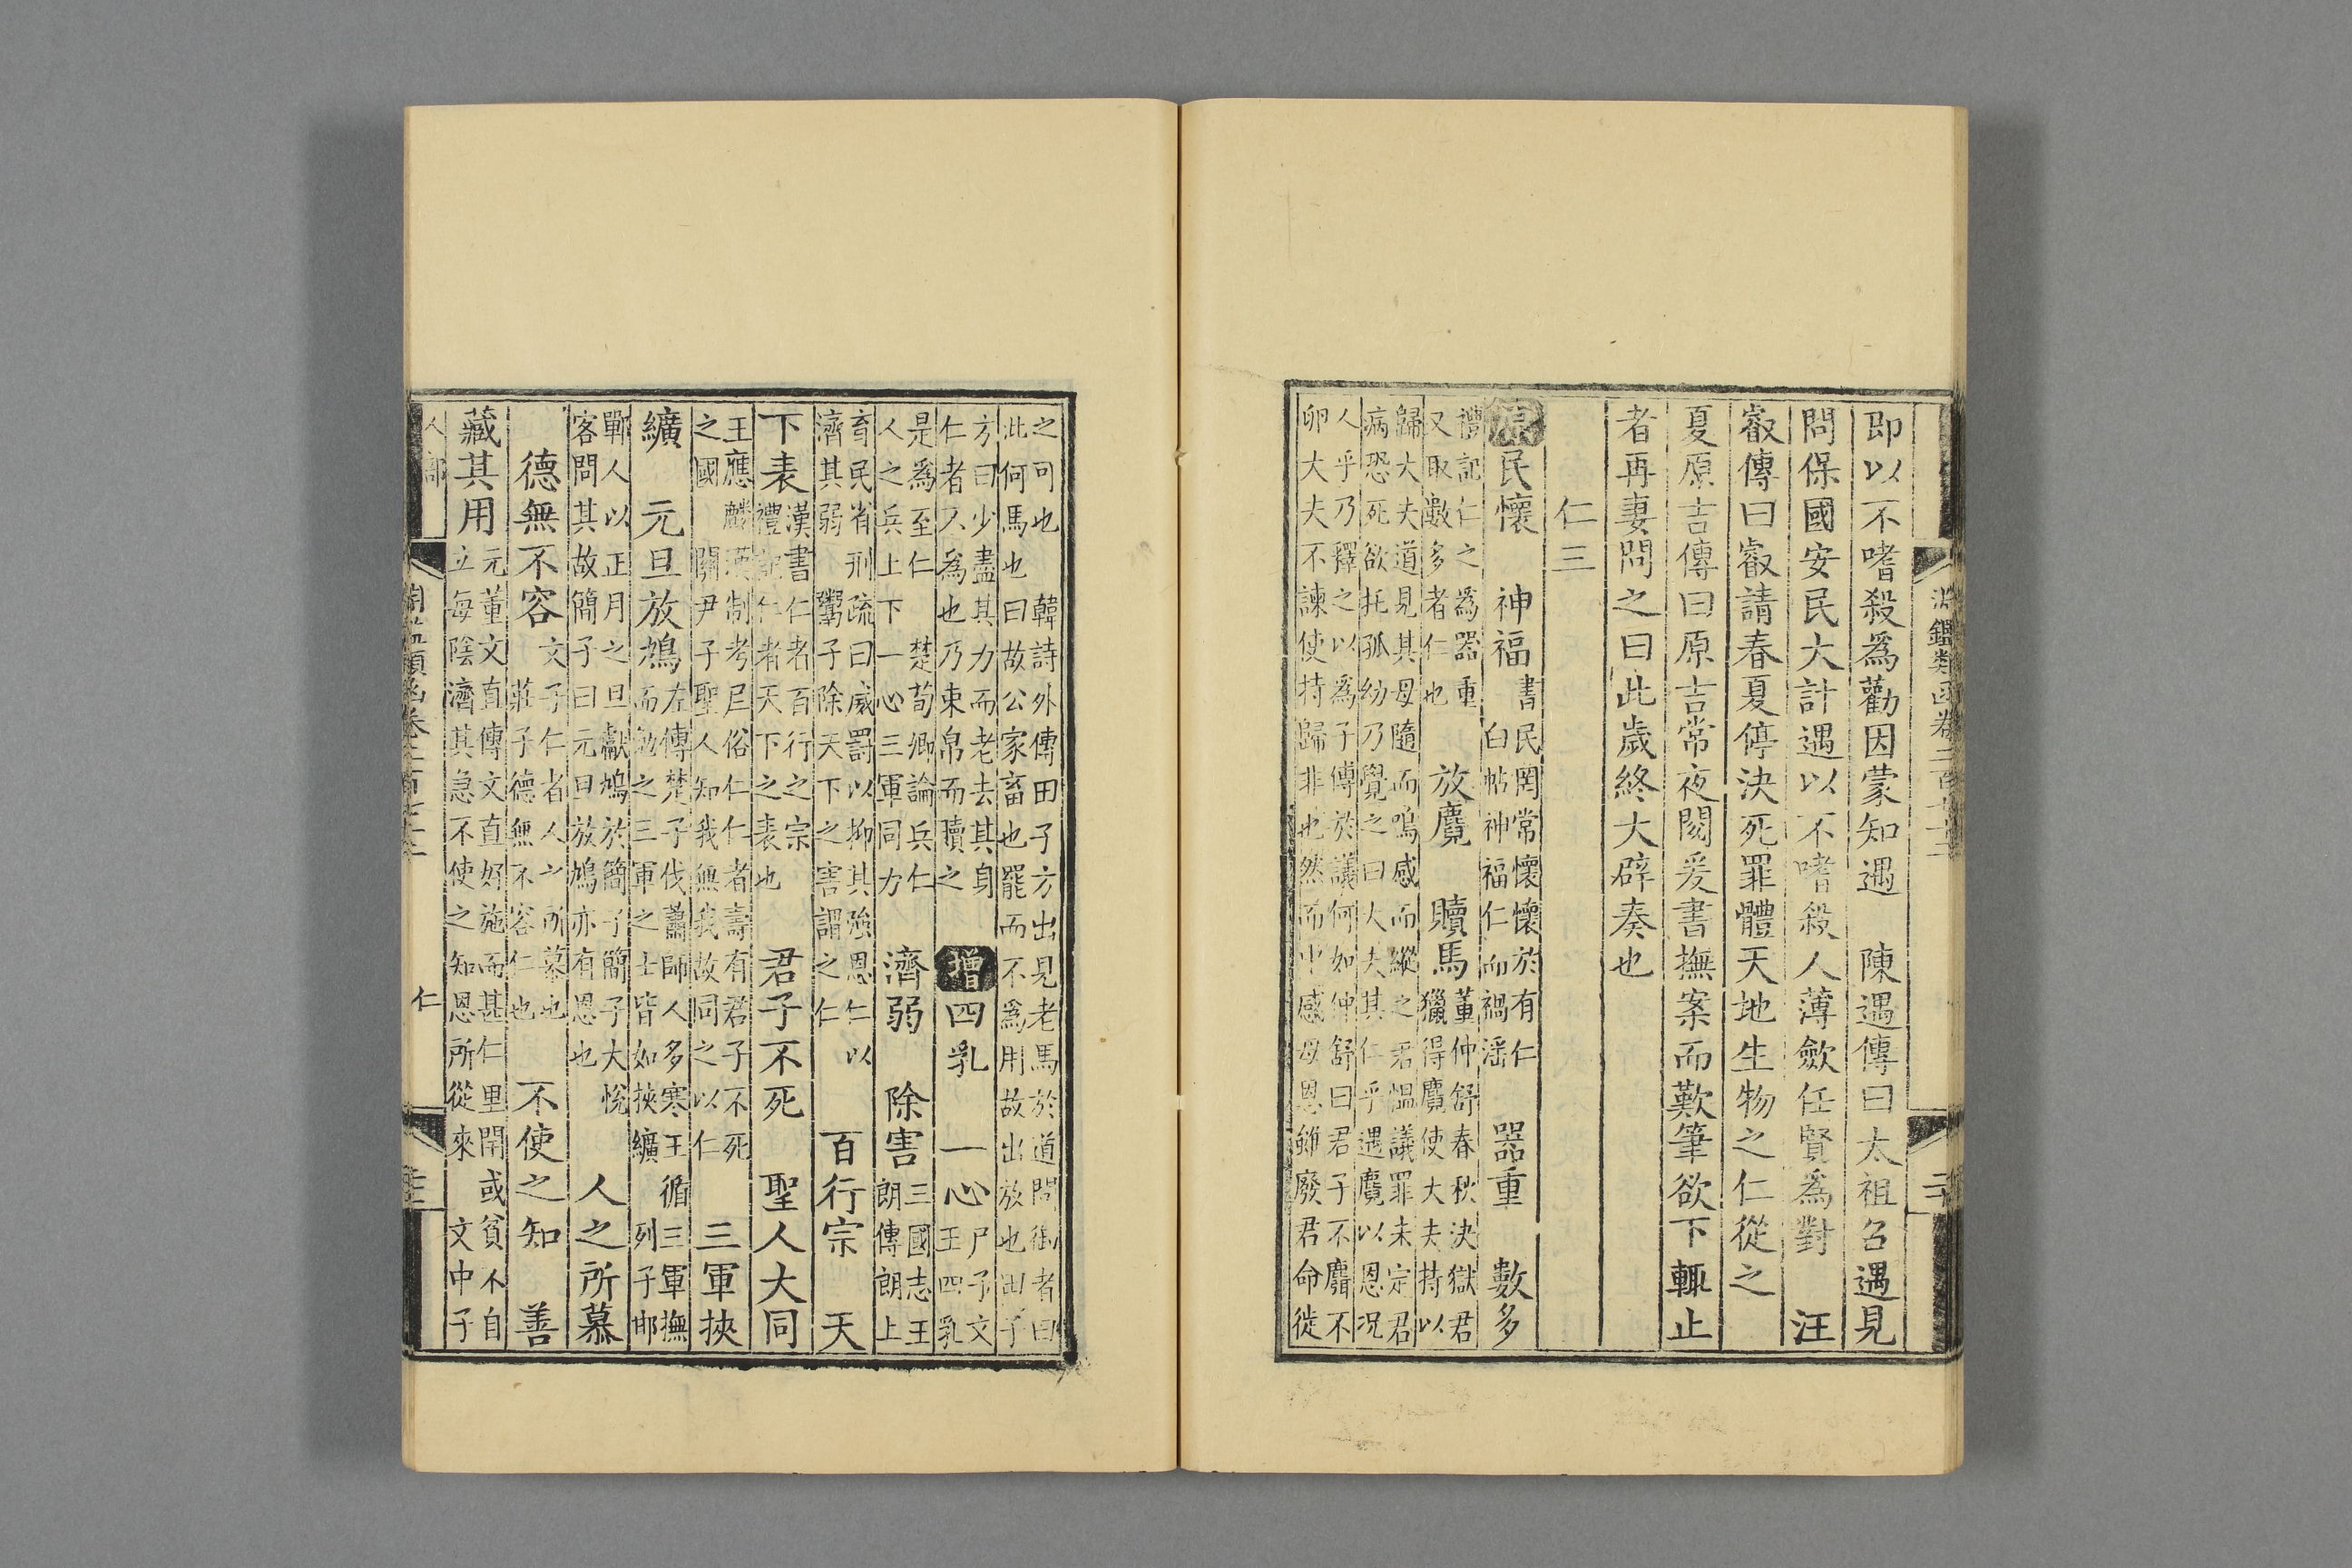 即以不嗜殺爲勸因蒙知遇　陳遇傳曰太祖召遇見
問保國安民大計遇以不嗜殺人薄歛任賢爲對　汪
叡傳曰叡請春夏停決死罪體天地生物之仁從之
夏原吉傳曰原吉常夜閱爰書撫案而歎筆欲下輒止
者再妻問之曰此歲終大辟奏也
仁三
原民懷　神福書民罔常懷懷於有仁
白帖神福仁而禍淫　器重　數多
禮記仁之爲器重
又取數多者仁也　放麑　贖馬董仲舒春秋決獄君
獵得麑使大夫持以
歸大夫道見其母隨而鳴感而縱之君愠議罪未定君
病恐死欲托孤幼乃覺之曰大夫其仁乎遇麑以恩况
人乎乃釋之以爲子傅於議何如仲舒曰君子不麛不
卵大夫不諫使持歸非也然而中感母恩雖廢君命徙
之可也　韓詩外傳田子方出見老馬於道問御者曰
此何馬也曰故公家畜也罷而不爲用故出放也田子
方曰少盡其力而老去其身
仁者不爲也乃束帛而贖之　增四乳　一心尸子文
王四乳
是爲至仁　楚荀卿論兵仁
人之兵上下一心三軍同力　濟弱　除害三國志王
朗傳朗上
育民省刑疏曰威罰以抑其強恩仁以
濟其弱　鬻子除天下之害謂之仁　百行宗　天
下表漢書仁者百行之宗
禮記仁者天下之表也　君子不死　聖人大同
王應麟漢制考尼俗仁仁者壽有君子不死
之國　關尹子聖人知我無我故同之以仁　三軍挾
纊　元旦放鳩左傳楚子伐蕭師人多寒王循三軍撫
而勉之三軍之士皆如挾纊　列子邯
鄲人以正月之旦獻鳩於簡子簡子大悅
客問其故簡子曰元旦放鳩亦有恩也　人之所慕
德無不容文子仁者人之所慕也
莊子德無不容仁也　不使之知　善
藏其用元董文直傳文直好施而甚仁里閈或貧不自
立每陰濟其急不使之知恩所從來　文中子
仁